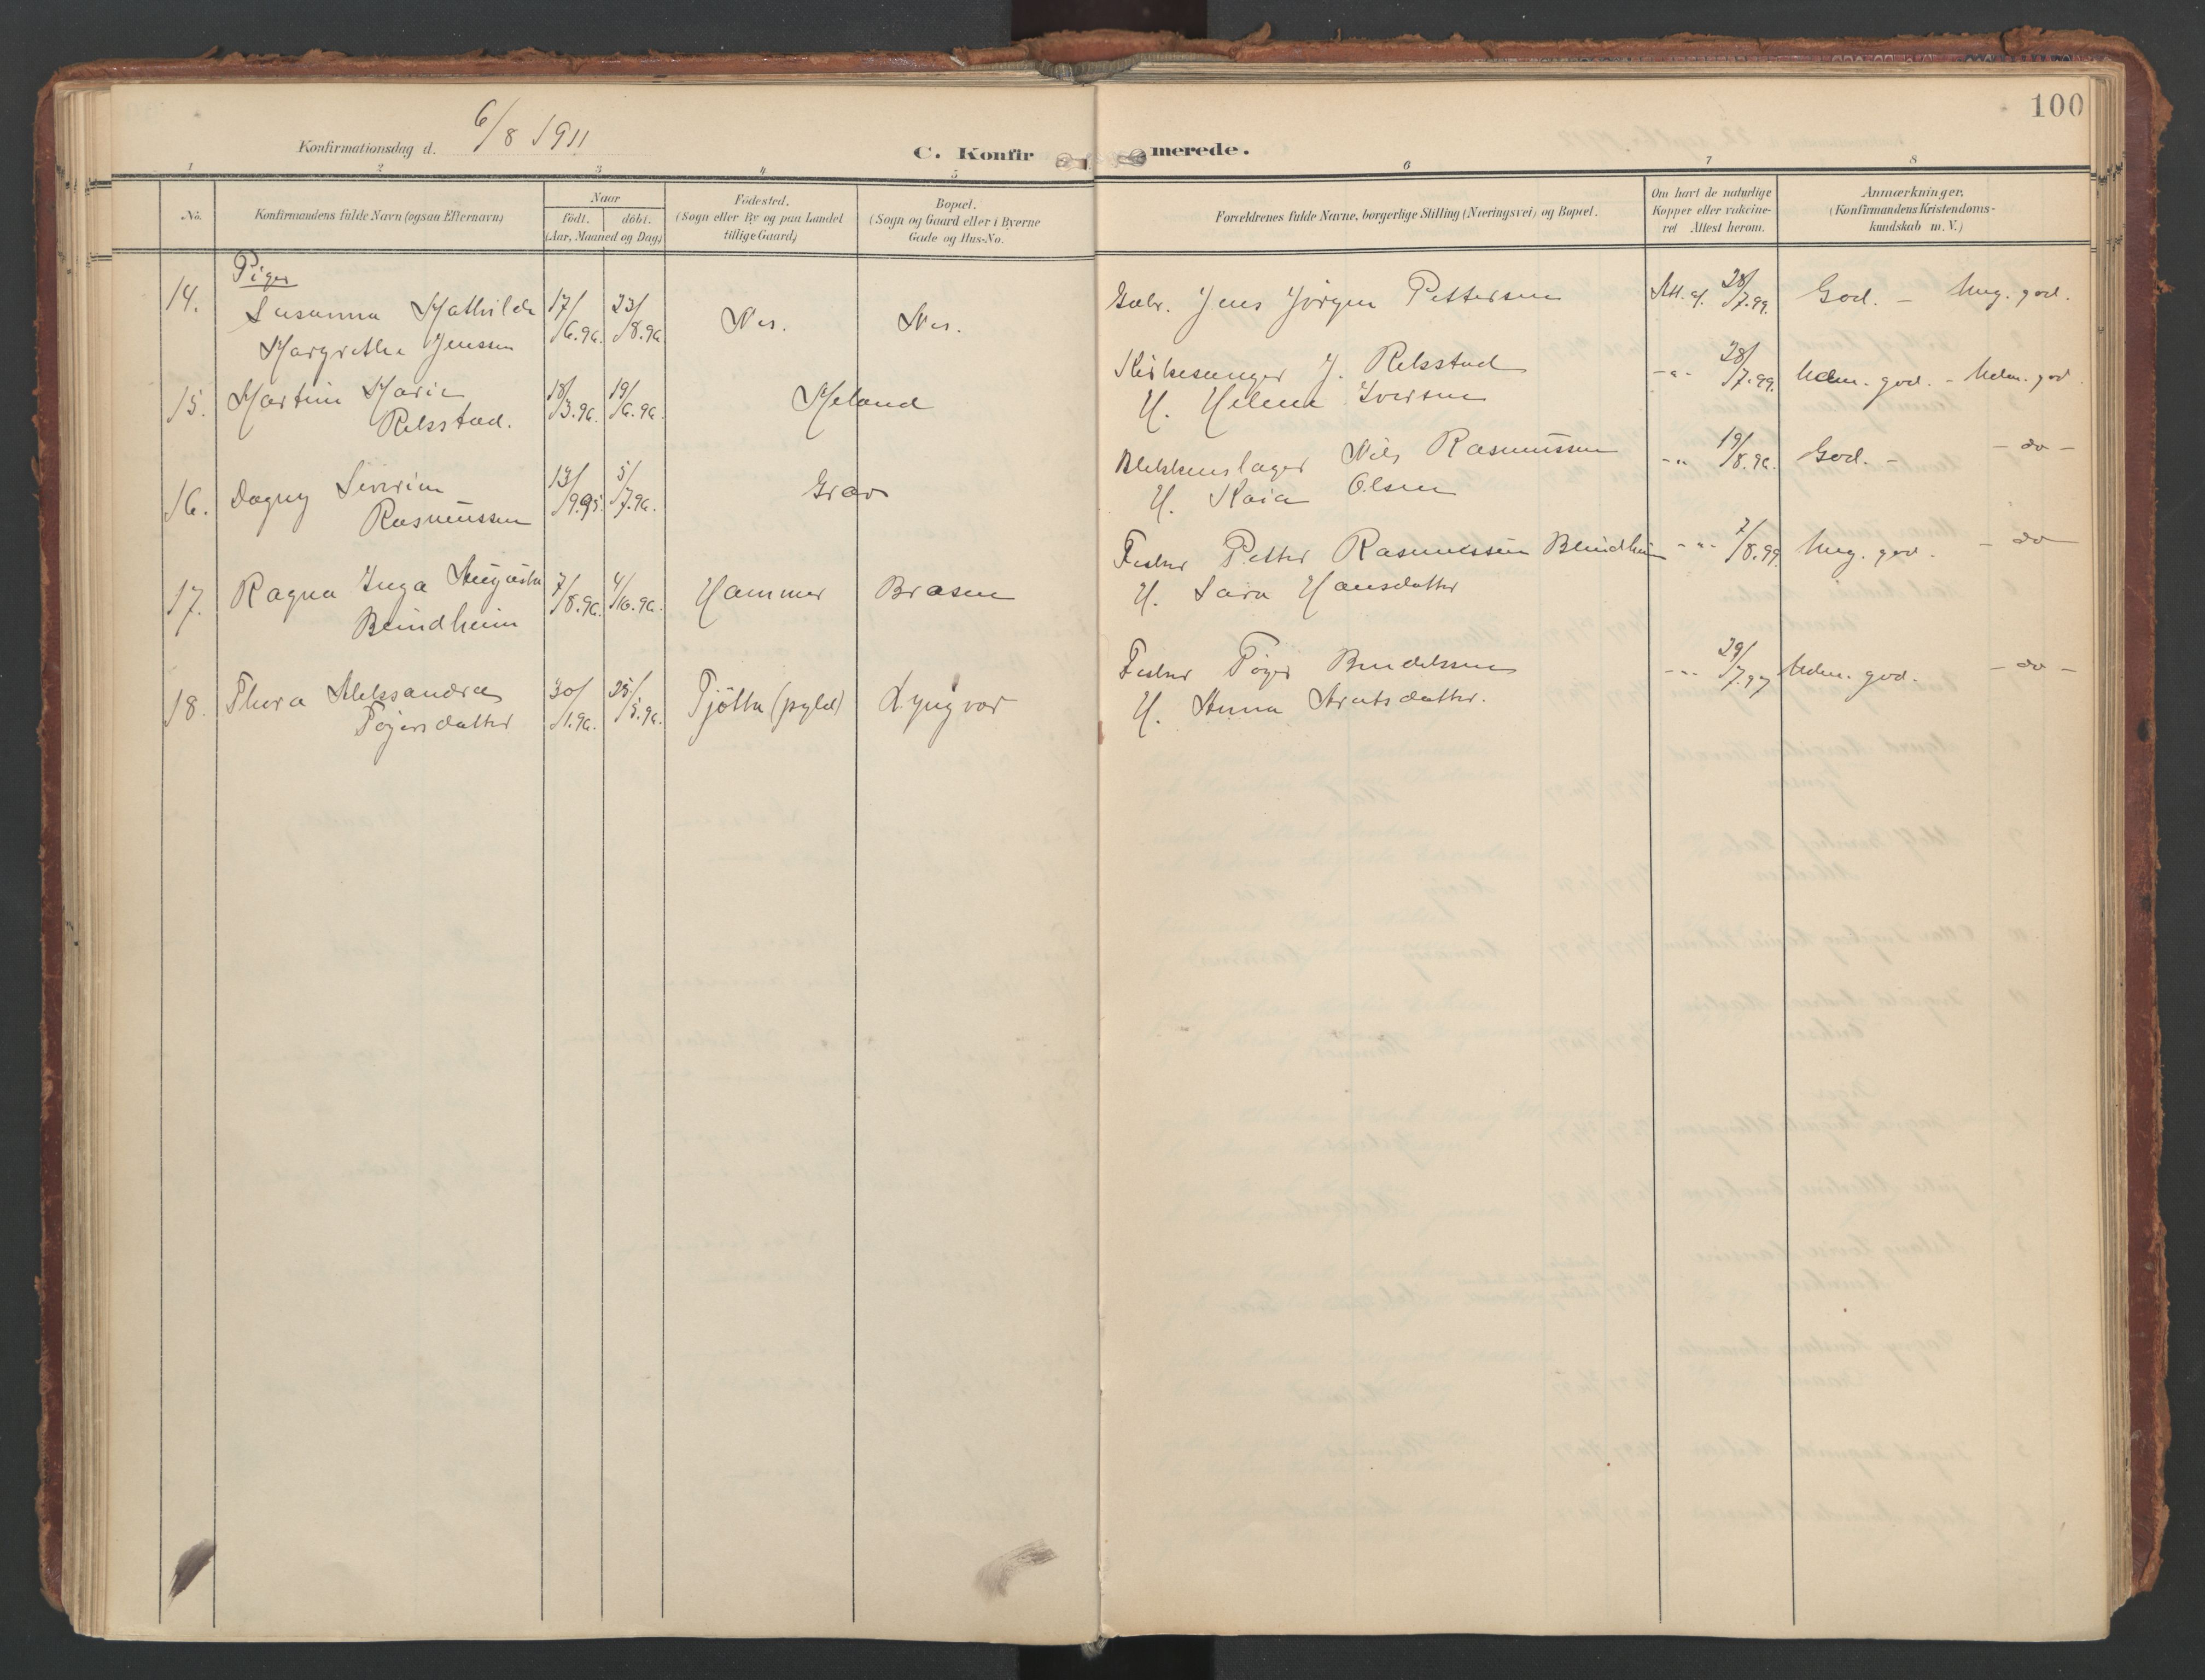 100
Konfirmationsdag d. 6/8 1911
C. Konfirmerede.
1 2 3 4 5 6 7 8
No.
Konfirmandens fulde Navn (ogsaa Efternavn)
Naar
födt. döbt.
(Aar, Maaned og Dag)
Födested.
(Sogn eller By og paa Landet
tillige Gaard)
Bopæl.
(Sogn og Gaard eller i Byerne
Gade og Hus-No.
Forældrenes fulde Navne, borgerlige Stilling (Næringsvei) og Bopæl.
Om havt de naturlige
Kopper eller vakcine-
ret Attest herom.
Anmærkninger.
(Konfirmandens Kristendoms-
kundskab m.V.)
Piger
14. Susanna Mathilde 17/6.96. 23/8.96 Nes. Nes. Jens Jörgen Pettersen Att. af. 28/7.99. God. – Meg. god.
Margrethe Jenssen
15. Martine Marie 18/3.96. 19/6.96. Meland Kirkesanger J. Relsstad -"- 28/7.99. Udm. god. – Udm. god.
Relsstad. H. Helene Iversen
16. Dagny Siverine 13/9.95. 5/7.96. Grav Blikkenslager Nils Rasmussen -"- 19/8.96. God. – – do –
Rasmussen H. Kaia Olsen
17. Ragna Inga Augusta 7/8.96. 4/10.96. Hammer Brasen Fisker Petter Rasmussen Blindheim -"- 7/8.99. Meg. god. – do
Blindheim H. Sara Hansdatter
18. Thora Aleksandra 30/1.96. 25/5.96. Tjötta Lyngvær Fisker Töger Bendikssen -"- 29/7.97 Udm. god. – do –
Tögersdatter H. Anna Arntsdatter.